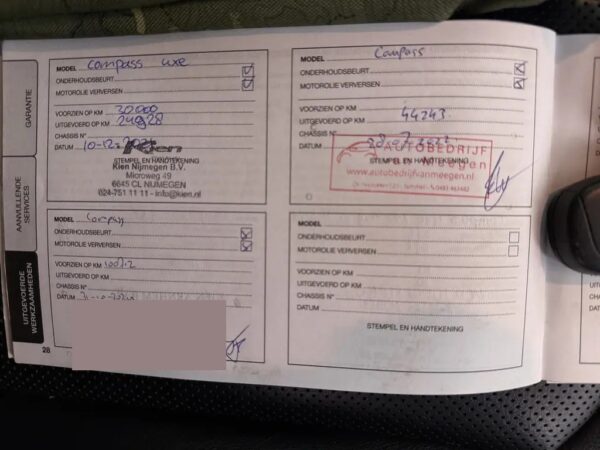 GARANTIE
AANVULLENDE SERVICES
UITGEVOERDE WERKZAAMHEDEN
MODEL Compass
ONDERHOUDSBEURT
MOTOROLIE VERVERSEN
VOORZIEN OP KM 30.000
UITGEVOERD OP KM 24928
CHASSIS N°
DATUM 10-12-
STEMPEL EN HANDTEKENING
Kien
Kien Nijmegen B.V.
Microweg 49
6645 CL NIJMEGEN
024-751 11 11 - info@kien.nl
MODEL Compass
ONDERHOUDSBEURT
MOTOROLIE VERVERSEN
VOORZIEN OP KM
UITGEVOERD OP KM 44243
CHASSIS N°
DATUM
AUTOBEDRIJF
van Meegen
STEMPEL EN HANDTEKENING
www.autobedrijfvanmeegen.nl
MODEL Compass
ONDERHOUDSBEURT
MOTOROLIE VERVERSEN
VOORZIEN OP KM
UITGEVOERD OP KM
CHASSIS N°
DATUM
ONDERHOUDSBEURT
MOTOROLIE VERVERSEN
VOORZIEN OP KM
UITGEVOERD OP KM
CHASSIS N°
DATUM
STEMPEL EN HANDTEKENING
28